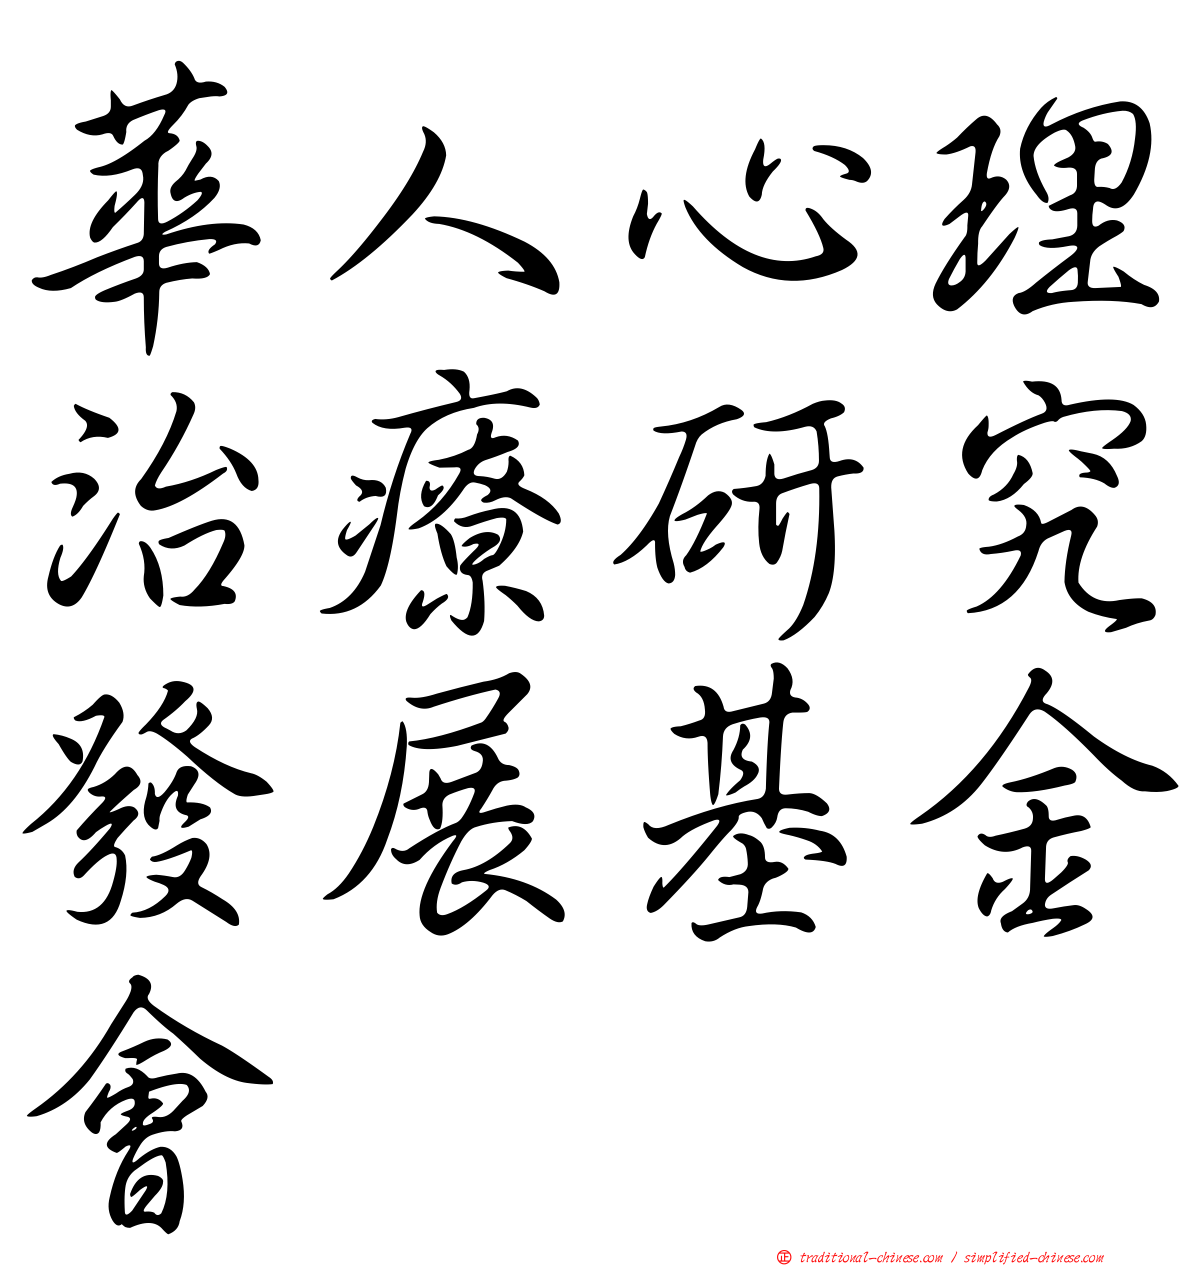 華人心理
治療研究
發展基金
會
正 traditional-chinese.com / simplified-chinese.com